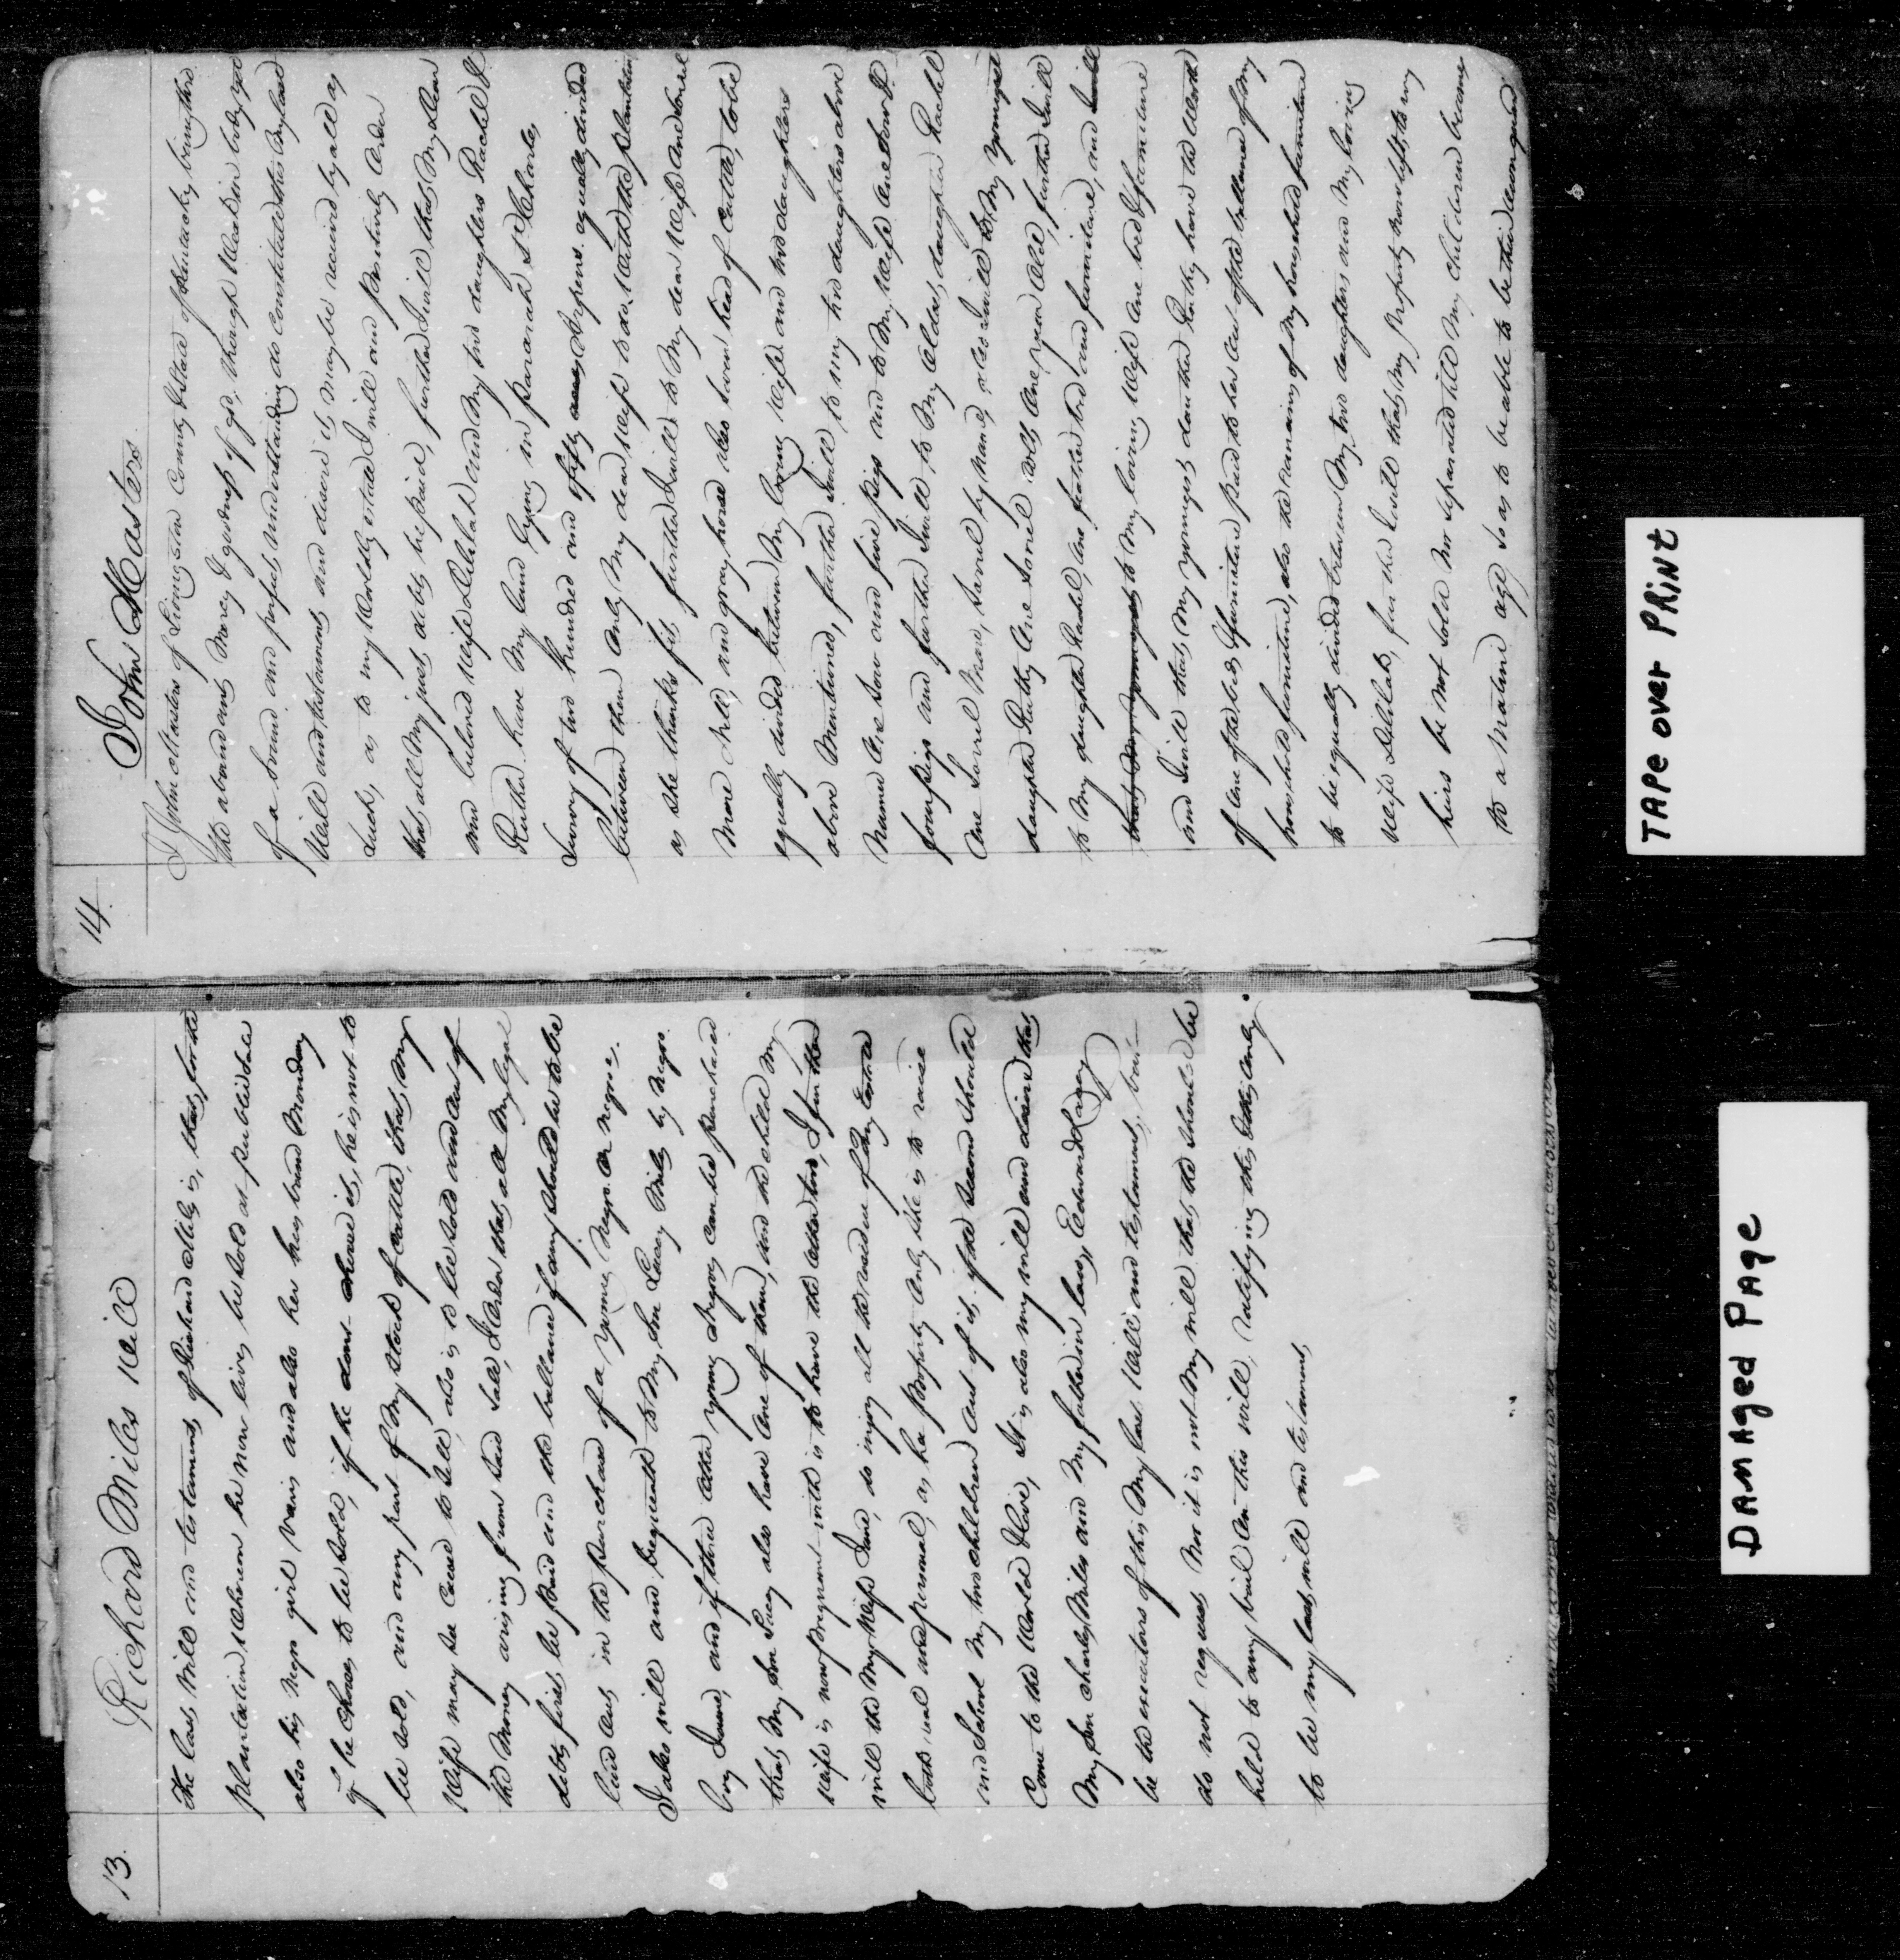 13.
Richard Miles Will
The last Will and testament of Richard Miles is, that, for the
plantation whereon he now lives, be sold at public sale
also his negro girl and also her husband Monday
if he chooses to be sold, if he dont choose it, he is not to
be sold, and any part of my stock of cattle, that my
Wife may see cause to sell, also is to be sold and out of
the Money arising from said sale, I Order that all my legal
debts first be paid and the ballance if any should be to be
laid out in the purchase of a young Negro or Negroe,
I also will and bequeath to my son Lacey Miles, my Negro
boy and if those other young Negroes can be purchased
that, my son Lacey also have one of them, and the child my
wife is now pregnant with is to have the other two, I further
will that my Wife Jane, do injoy all the residue of my Estate
both real and personal, as her property only she is to raise
and School my two children out of it, if the second should
Come to the World Alive, It is also my will and desire that
My son Charles Miles and My father in law, Edward Lacey
be the executors of this, My last Will and testament, but
do not request Nor it is not my will that the should be
held to any bail on this will, ratifying this & this only
to be my last will and testament,
14.
John Masters
I John Masters of Livingston County & State of Kentucky being thro
the abundant Mercy & goodness of god, though Weak in body yet
of a sound and perfect understanding do constitute this my last
Will and testament, and desire it may be received by all as
such, as to my Worldly estate I will and positively Order
that all my just debts be paid, further I will that My dear
and beloved Wife Delilah and My two daughters Rachel &
Rutha have My land lying in St Charles,
Survey of two hundred and fifty equally divided
between them only, My dear Wife to the plantation
as she thinks fit, further I will to My dear Wife one sorrel
mare and gray horse also head of Cattle, to be
equally divided between My loving Wife and two daughters
above Mentioned, further I will to my two daughters above
Named One Sow and five pigs and to My Wife One Sow &
four pigs and further I will to My Oldest daughter Rachel
One Sorrel Mare, by Name, also I will to My youngest
daughter Ruthy One Sorrel Colt, One year old, further I will
to My daughter Rachel, One feather bed and furniture, and I will
that My youngest to My loving Wife One bed & furniture
and I will that, My youngest daughter Ruthy have the Worth
of One of the beds & furniture paid to her out of the ballance of my
household furniture, also the remains of My household furniture
to be equally divided between My two daughters and My loving
Wife Delilah, further I will that, My property now left, to my
heirs be not Sold Nor Separated till My children become
to a Mature age So as to be able to be their
TAPE over PRINT
DAMAged PAge